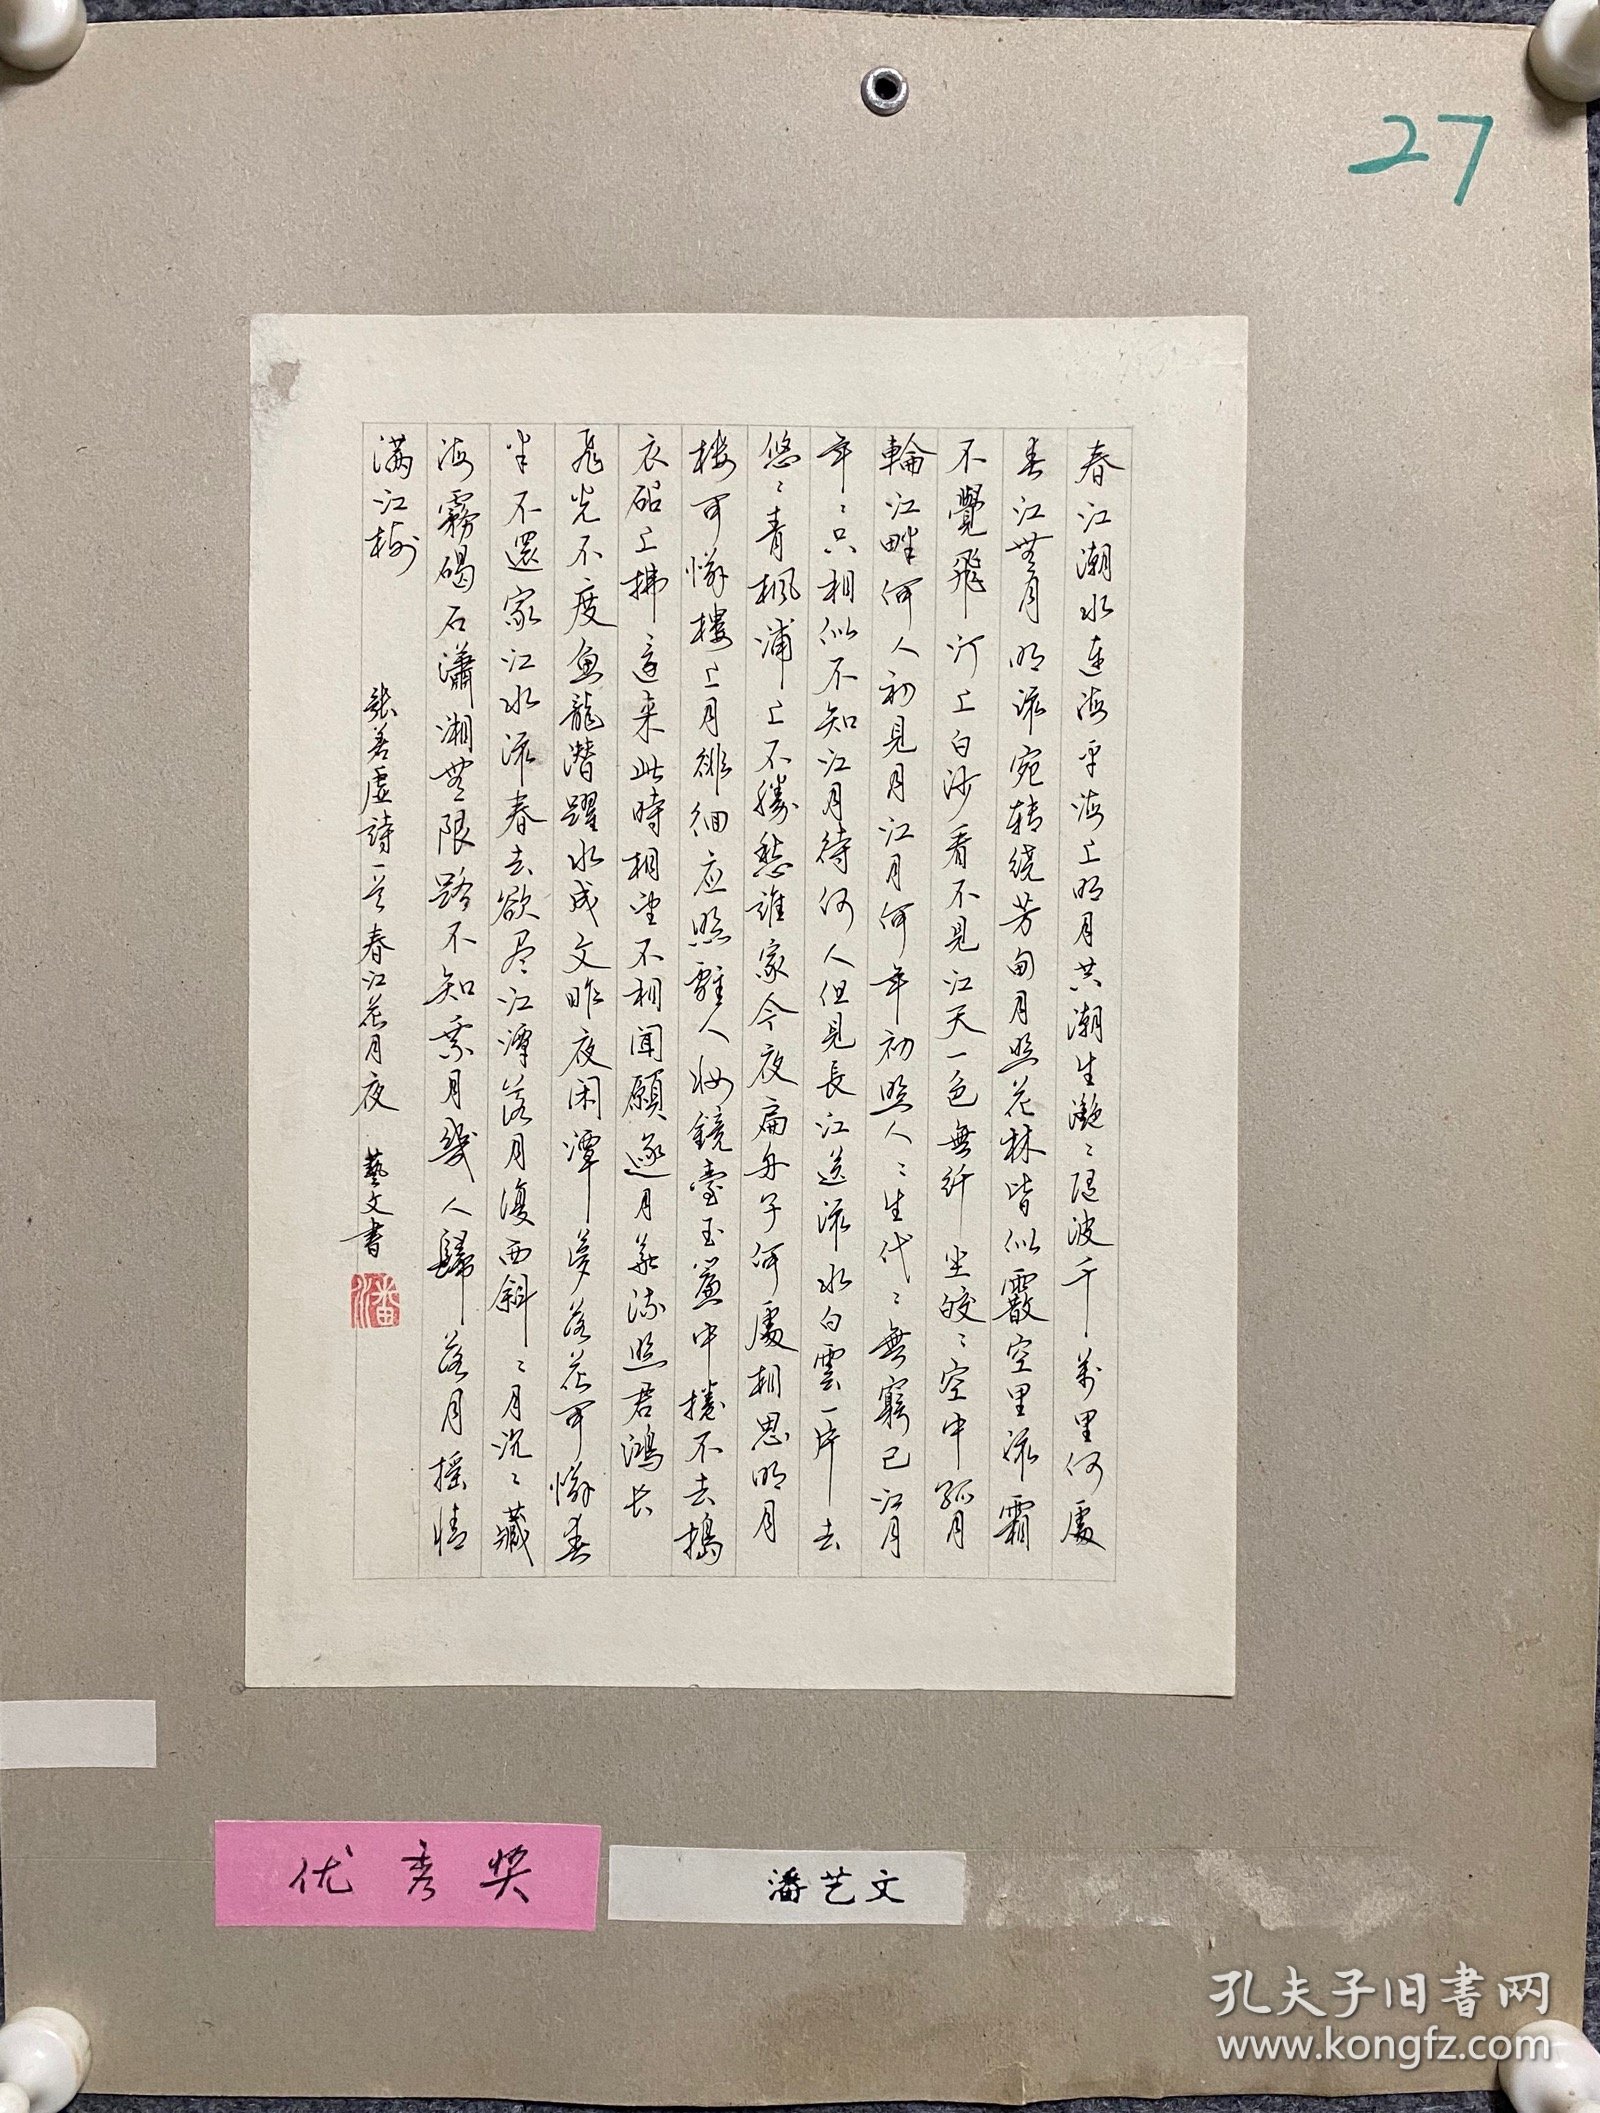 27
春江潮水连海平海上明月共潮生灧〻随波千万里何處
春江無月明流宛转绕芳甸月照花林皆似霰空里流霜
不覺飛汀上白沙看不見江天一色無纤尘皎〻空中孤月
輪江畔何人初見月江月何年初照人〻生代〻無窮已江月
年〻只相似不知江月待何人但見長江送流水白雲一片去
悠〻青枫浦上不勝愁誰家今夜扁舟子何處相思明月
楼可憐樓上月徘徊应照離人妆鏡臺玉簾中捲不去搗
衣砧上拂還来此時相望不相闻願逐月華流照君鴻长
飛光不度魚龍潜躍水成文昨夜闲潭夢落花可憐春
半不還家江水流春去欲尽江潭落月復西斜〻月沉〻藏
海霧碣石瀟湘無限路不知乘月幾人歸落月摇情
满江树
張若虚詩一首春江花月夜 藝文書
潘
优秀奖
潘艺文
孔夫子旧书网
www.kongfz.com